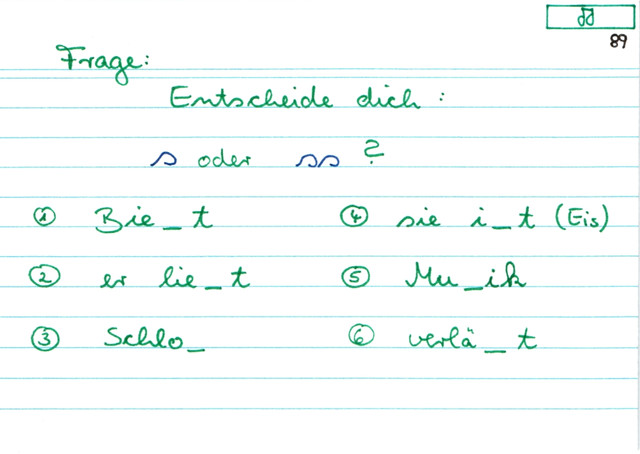 89
Frage:
Entscheide dich :
s oder ss ?
① Bie_t ④ sie i_t (Eis)
② er lie_t ⑤ Mu_ik
③ Schlo_ ⑥ verlä_t